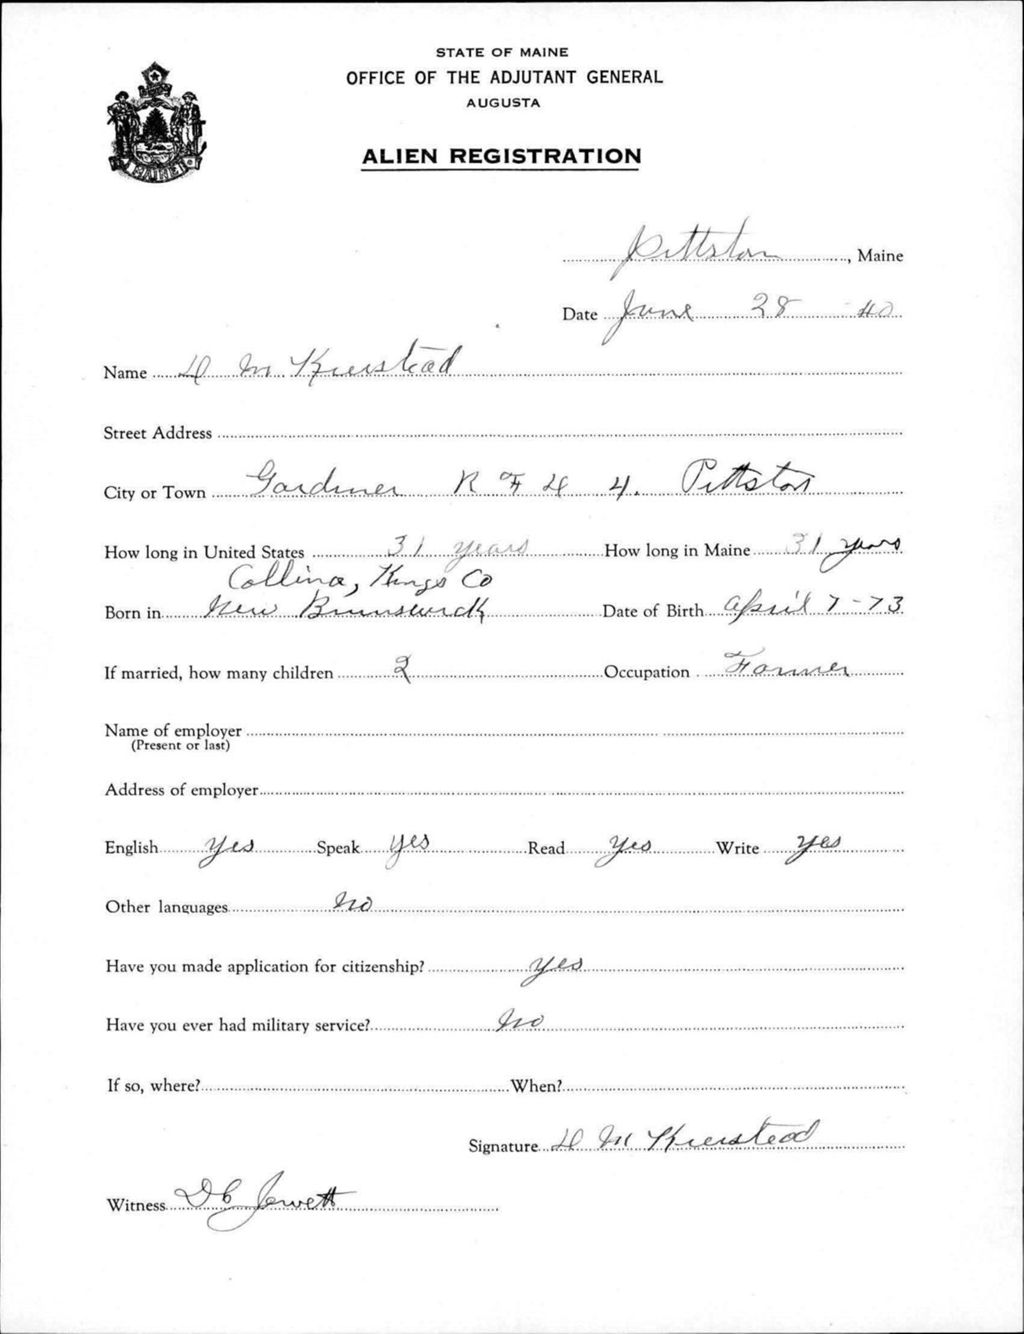 STATE OF MAINE
OFFICE OF THE ADJUTANT GENERAL
AUGUSTA
ALIEN REGISTRATION
Pittston, Maine
Date June 28 40
Name D M Kierstead
Street Address
City or Town Gardiner R F D 4. Pittston
How long in United States 31 years How long in Maine 31 years
Collina, Kings Co
Born in New Brunswick Date of Birth April 7-73
If married, how many children 2 Occupation Farmer
Name of employer
(Present or last)
Address of employer
English Yes Speak Yes Read Yes Write Yes
Other languages No
Have you made application for citizenship? Yes
Have you ever had military service? No
If so, where? When?
Signature D M Kierstead
Witness D C Jewett